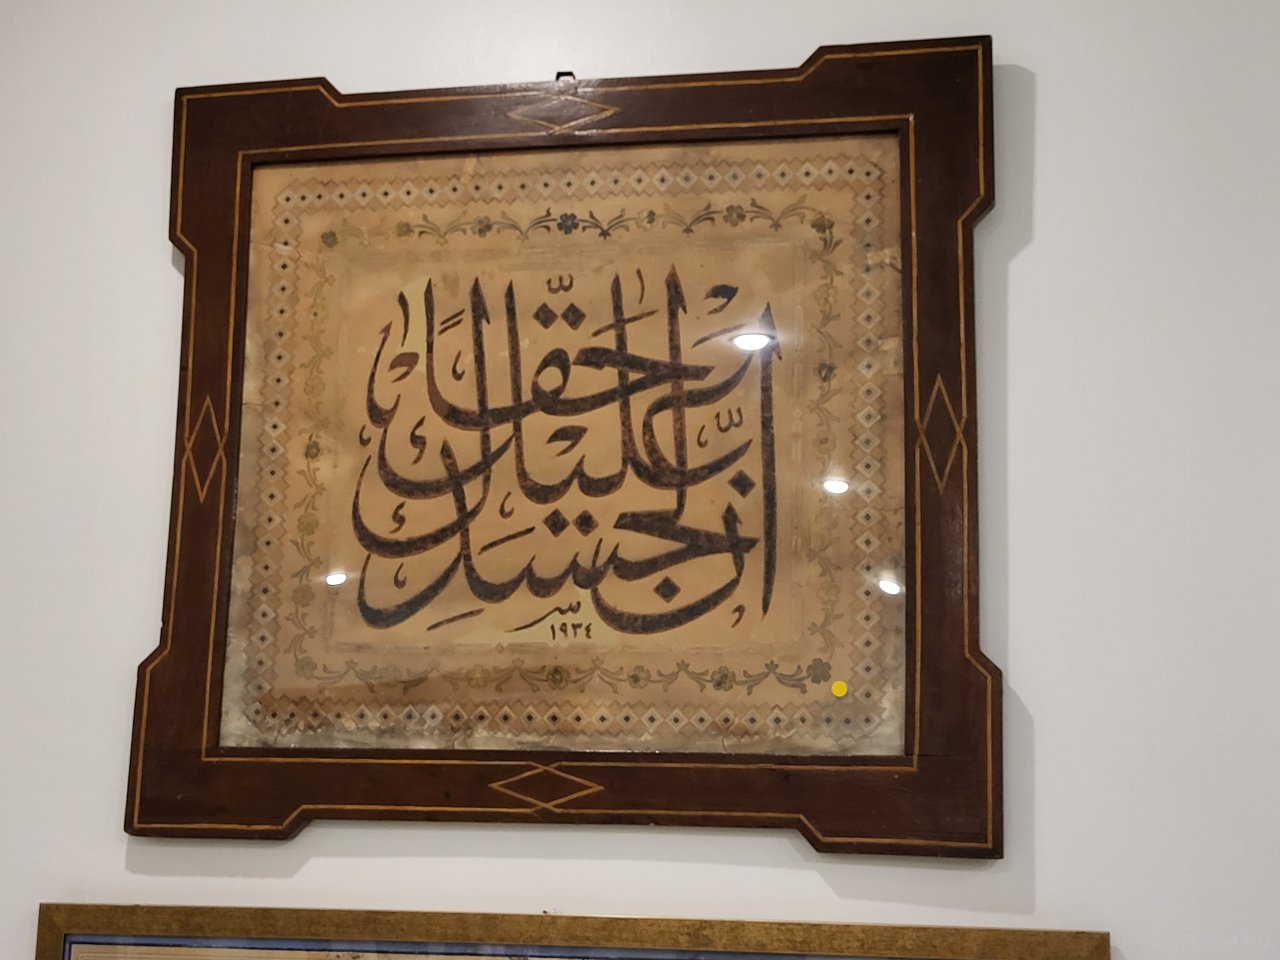 ان لجسدك عليك حقاً
١٩٣٤